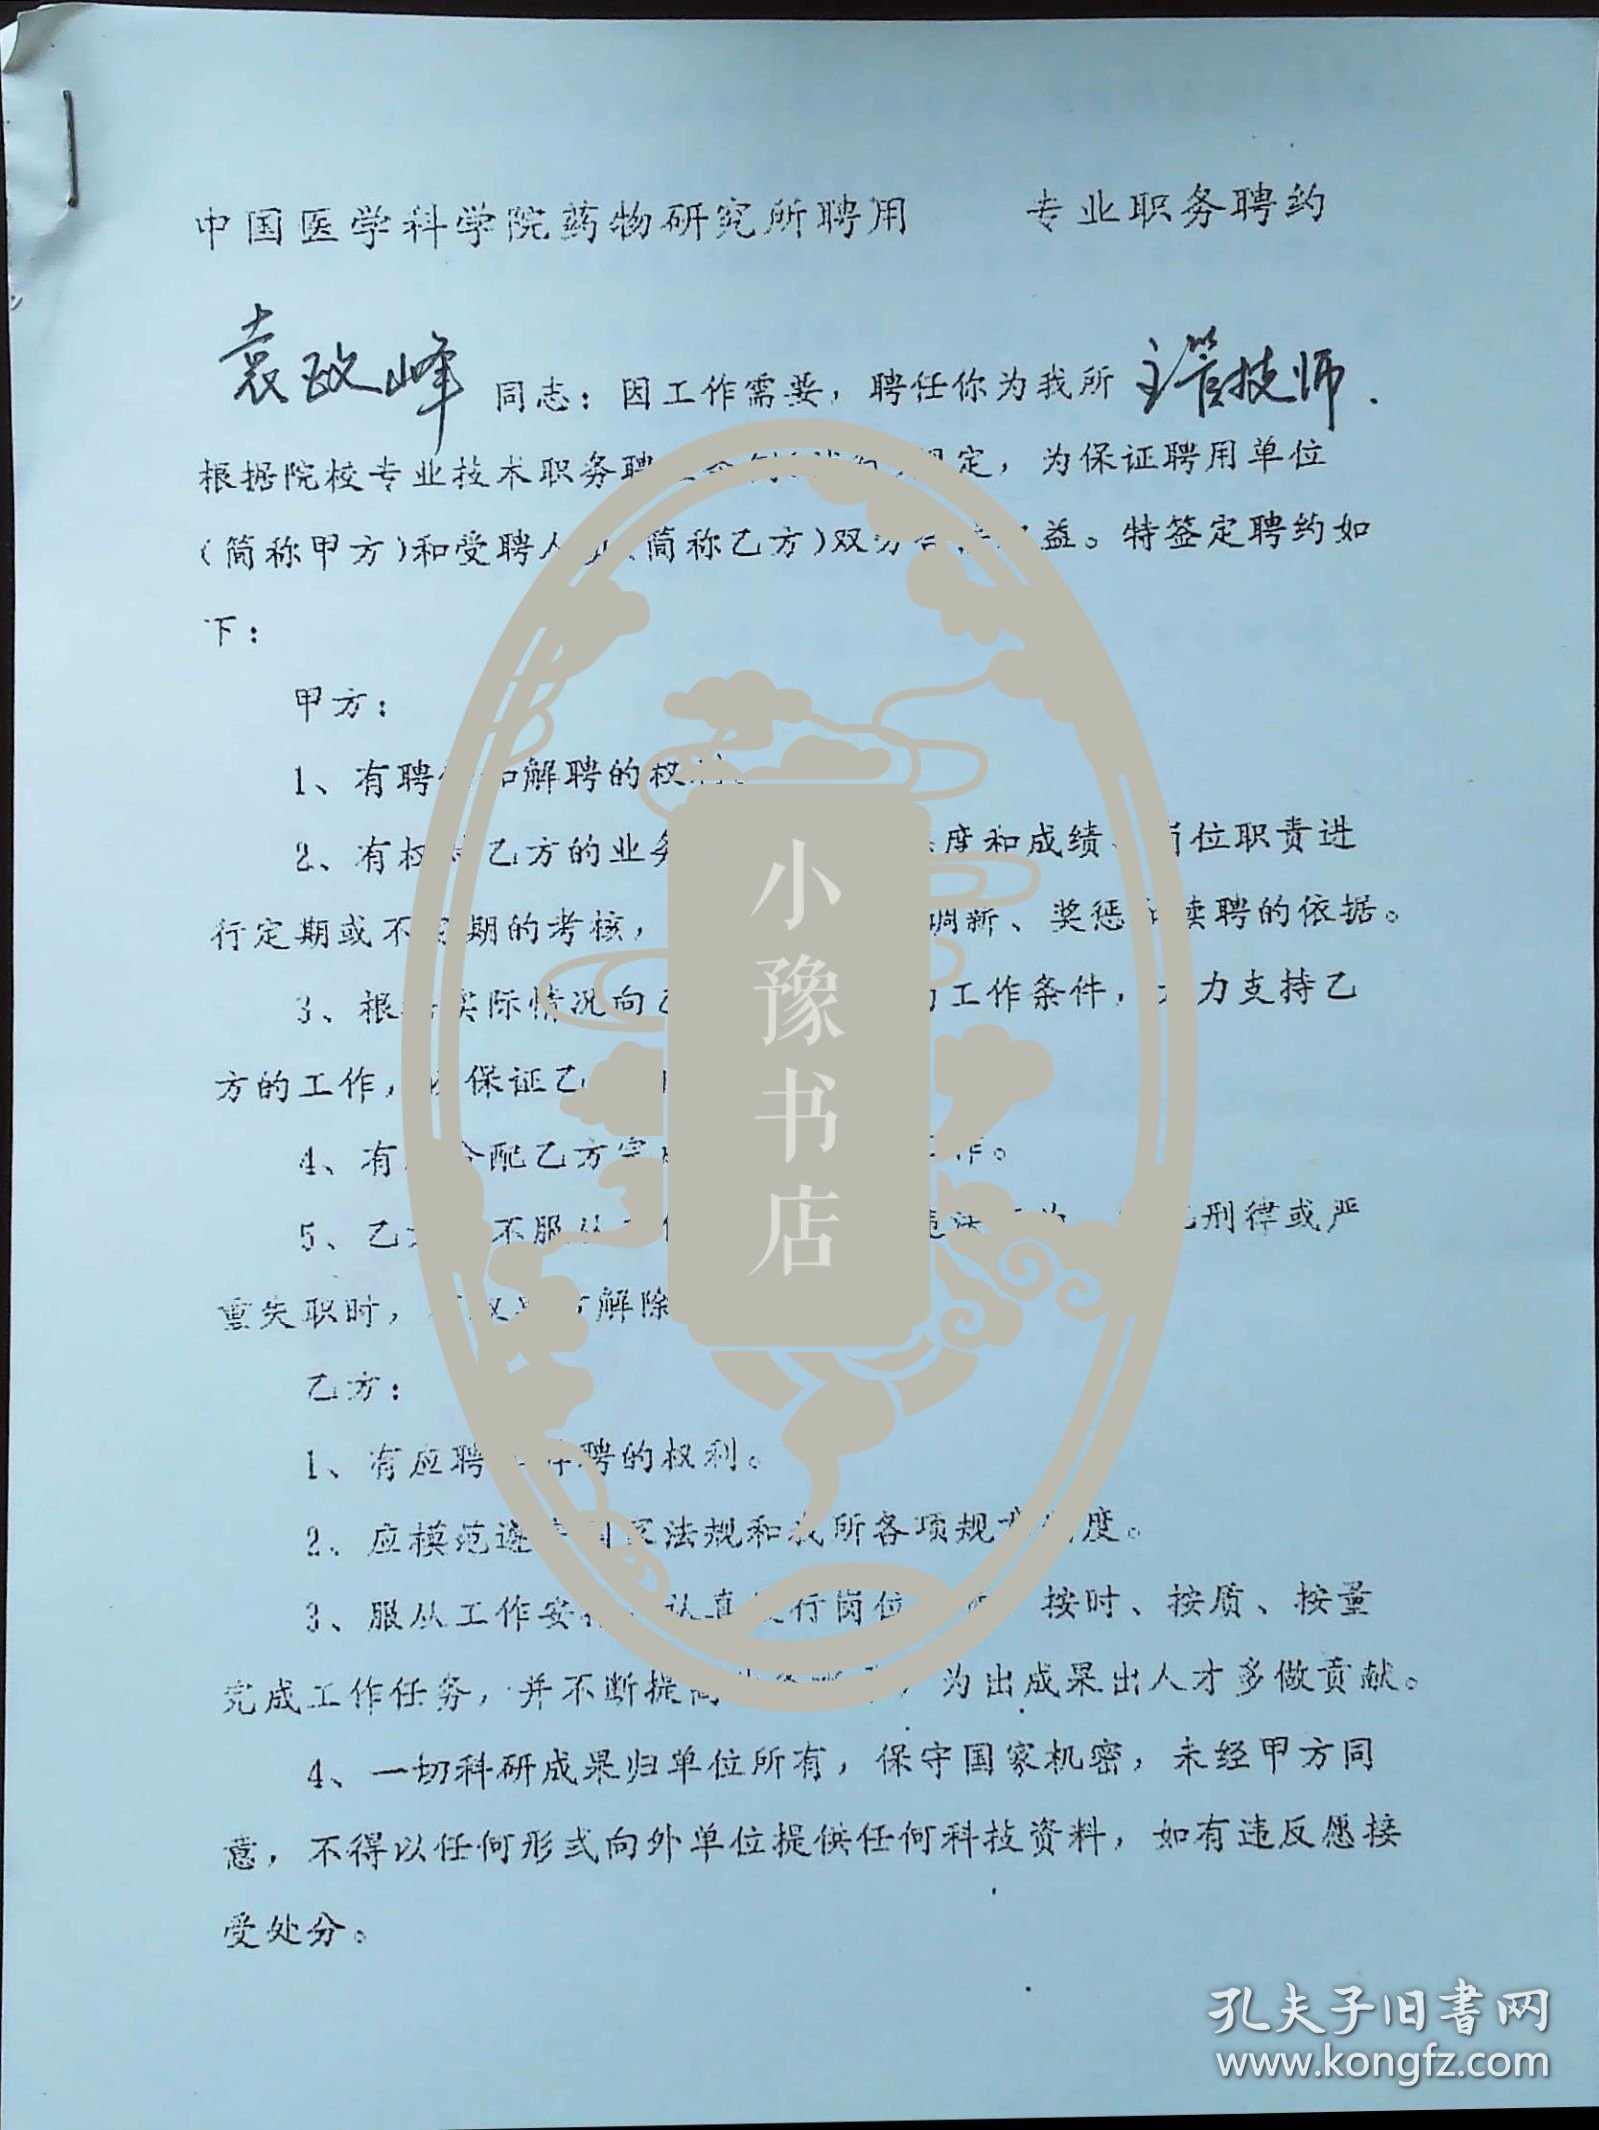 中国医学科学院药物研究所聘用 专业职务聘约
袁政峰 同志：因工作需要，聘任你为我所 主管技师.
根据院校专业技术职务聘 规定，为保证聘用单位
（简称甲方）和受聘人 （简称乙方）双方合法权益。特签定聘约如
下：
甲方：
1、有聘任和解聘的权利。
2、有权对乙方的业务 态度和成绩、岗位职责进
行定期或不定期的考核， 调薪、奖惩和续聘的依据。
3、根据实际情况向乙 的工作条件，大力支持乙
方的工作， 保证乙
4、有权分配乙方完成 工作。
5、乙方 不服从 违法行为 刑律或严
重失职时，有权 解除
乙方：
1、有应聘和辞聘的权利。
2、应模范遵守国家法规和我所各项规章制度。
3、服从工作安排，认真履行岗位职责，按时、按质、按量
完成工作任务，并不断提高业务水平，为出成果出人才多做贡献。
4、一切科研成果归单位所有，保守国家机密，未经甲方同
意，不得以任何形式向外单位提供任何科技资料，如有违反愿接
受处分。
小豫书店
孔夫子旧书网
www.kongfz.com